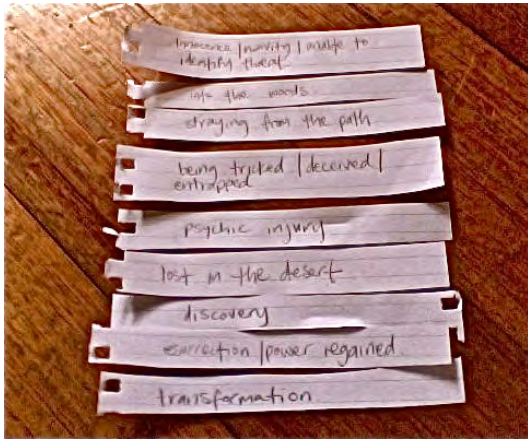 innocence / naivity / unable to
identify threat
into the woods
straying from the path
being tricked / deceived /
entrapped
psychic injury
lost in the desert
discovery
/ power regained
transformation